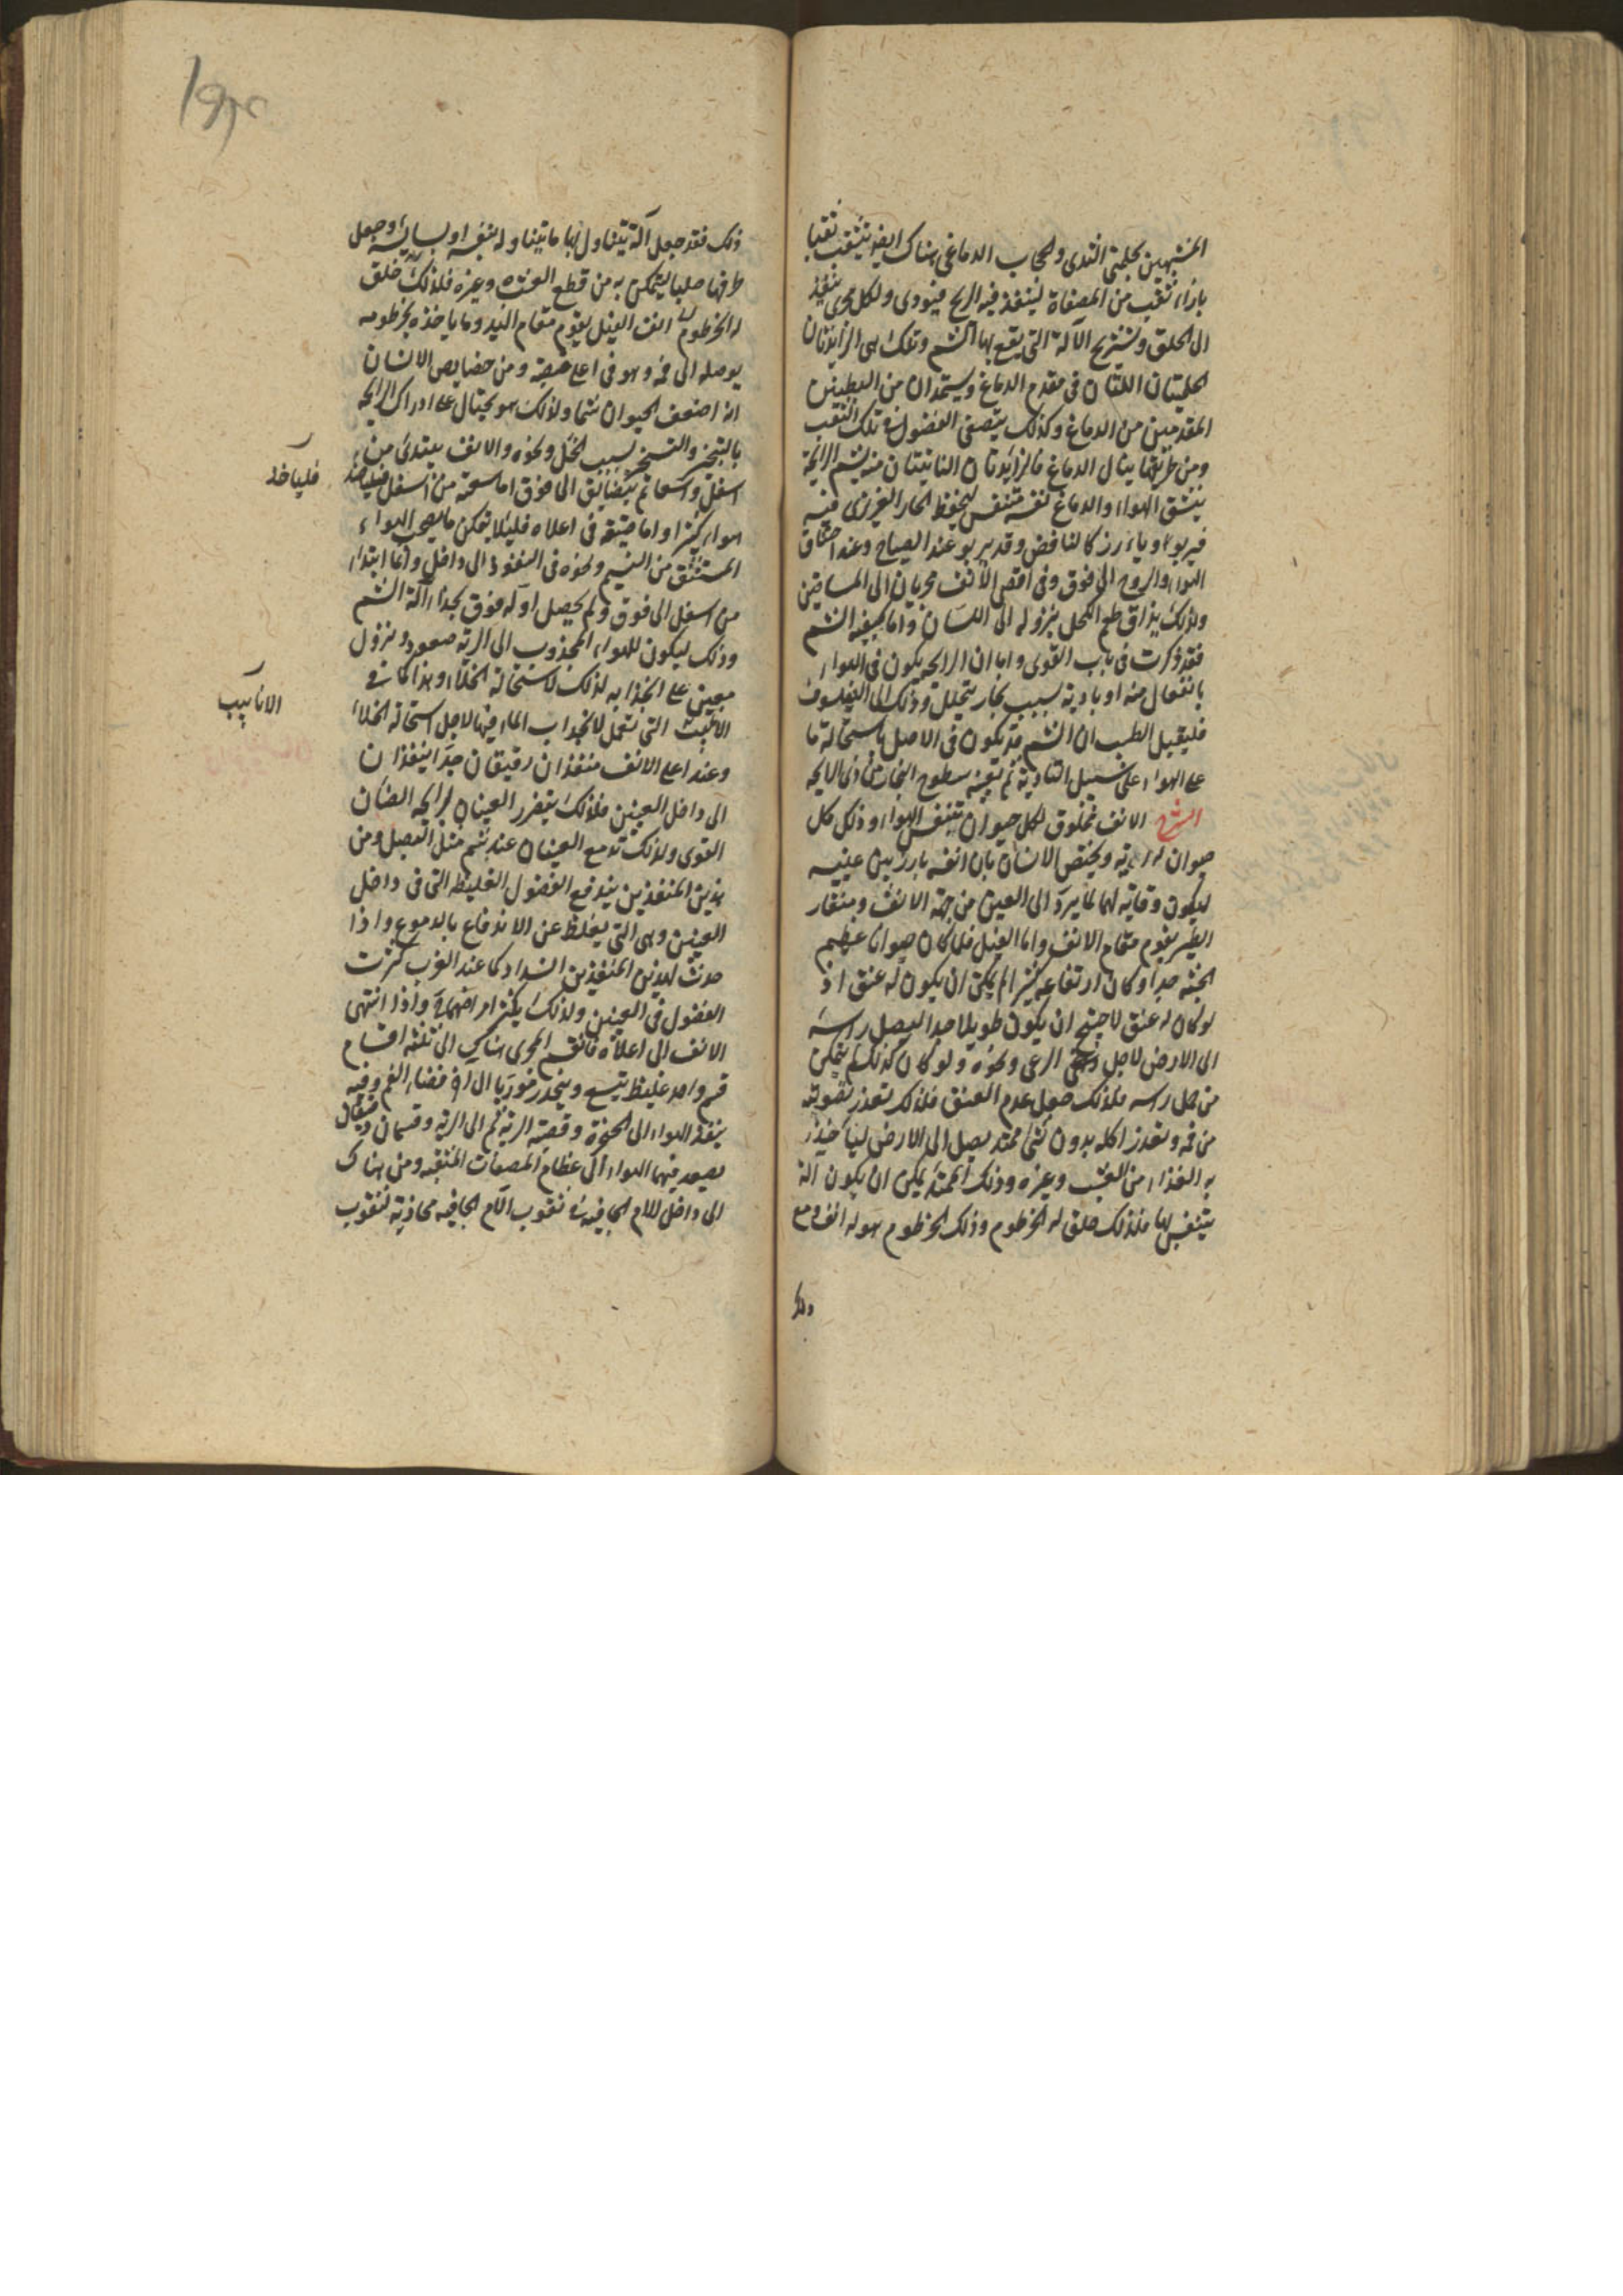 المشبهين بحلمتى الثدى والحجاب الدماغى هناك ايضا يثقب ثقبا
بازاء ثقب من المصفاة لينفذ فيه الريح فيؤدى ولكل مجرى ينفذ
الى الحلق وتشريح الآلة التى يقع بها الشم وتلك هى الزايدتان
الحلميتان اللتان فى مقدم الدماغ ويستمدان من البطينين
المقدمين من الدماغ وكذلك يتصفى الفضول فى تلك الثقب
ومن طريقها ينال الدماغ والزايدتان الناتيتان منه يشم الرايحة
ينشق الهواء والدماغ نفسه متنفس ليحفظ الحار الغريزى فيه
فيربو ويارز كالنافض وقد يربو عند الصياح وعند اختناق
الهواء والروح الى فوق وفى اقصى الانف مجريان الى الماقين
ولذلك يذاق طعم الكحل بنزوله الى اللسان واما كيفية الشم
فقد ذكرت فى باب القوى واما ان الرايحة يكون فى الهواء
بانفعال منه او بادية بسبب بخار يتحلل وذلك الى الفيلسوف
فليقبل الطبيب ان الشم قد يكون فى الاصل باستحالة ما
من الهواء على سبيل التادية ثم يعينه سطوع البخار من ذى الرايحة
الشرح الانف مخلوق لكل حيوان يتنفس الهواء وذلك كل
حيوان له رية ويختص الانسان بان انفه بارز بين عينيه
ليكون وقاية لهما لما يرد الى العين من جهة الانف ومنقار
الطير يقوم مقام الانف واما الفيل فلما كان حيوانا عظيم
الجثة جدا وكان ارتفاعه كثيرا لم يكن ان يكون له عنق اذ
لو كان له عنق لاحتيج ان يكون طويلا جدا ليصل راسه
الى الارض لاجل الرعى ونحوه ولو كان كذلك لم يتمكن
من حمل راسه فلذلك جعل عدم العنق فلذلك تعذر تصويته
من فمه وتعذر اكله بدون شئ ممتد يصل الى الارض لياخذ
به الغذاء من العشب وغيره وذلك الممتد يمكن ان يكون آلة
يتنفس بها فلذلك خلق له الخرطوم وذلك الخرطوم هو له انف ومع
ذلك
ذلك فقد جعل آلة يتناول بها ما يتناوله بنفسه او بسايسه وجعل
طرفها صلبا ليتمكن به من قطع العشب وغيره فلذلك خلق
له الخرطوم انف الفيل يقوم مقام اليد وما ياخذه بخرطومه
يوصله الى فمه وهو فى اعلى صيفه ومن خصايص الانسان
انه اضعف الحيوان شما ولذلك هو يحتال على ادراك الرايحة
بالتبخر والتسخير بسبب الحك ونحوه والانف يبتدئ من
اسفل واسعا ثم يتضايق الى فوق اما سعته من اسفل فلياخذ
هواء كثيرا واما ضيقه فى اعلاه فليلا يمكن ما يصحب الهواء
المستنشق من النسيم ونحوه فى النفوذ الى داخل وانما ابتداء
من اسفل الى فوق ولم يحصل اوله فوق بحذاء آلة الشم
وذلك ليكون للهواء المجذوب الى الرية صعود ونزول
معين على انجذابه لذلك لاستحالة الخلاء وهذا كما فى
الانابيب التى تعمل لانجذاب الماء فيها لاجل استحالة الخلاء
وعند اعلى الانف منفذان رقيقان جدا ينفذان
الى داخل العينين فلذلك يتضرر العينان لرايحة الصنان
القوى ولذلك تدمع العينان عند شم مثل البصل ومن
هذين المنفذين يندفع الفضول الغليظة التى فى داخل
العينين وهى التى يغلظ عن الاندفاع بالدموع واذا
حدث لهذين المنفذين انسداد كما عند الغرب كثرت
الفضول فى العينين ولذلك يكثر امراضهما واذا انتهى
الانف الى اعلاه فانقسم المجرى هناك الى ثلثه اقسام
قسم واحد غليظ يتسع وينحدر موربا الى اخر فضاء الفم وفيه
ينفذ الهواء الى الحنجرة وقصبة الرية ثم الى الرية وقسمان دقيقان
يصعد فيهما الهواء الى عظام المصفات المثقبة ومن هناك
الى داخل الام الجافية فى ثقوب الام الجافية محاذية لثقوب
فلياخذ
الانابيب